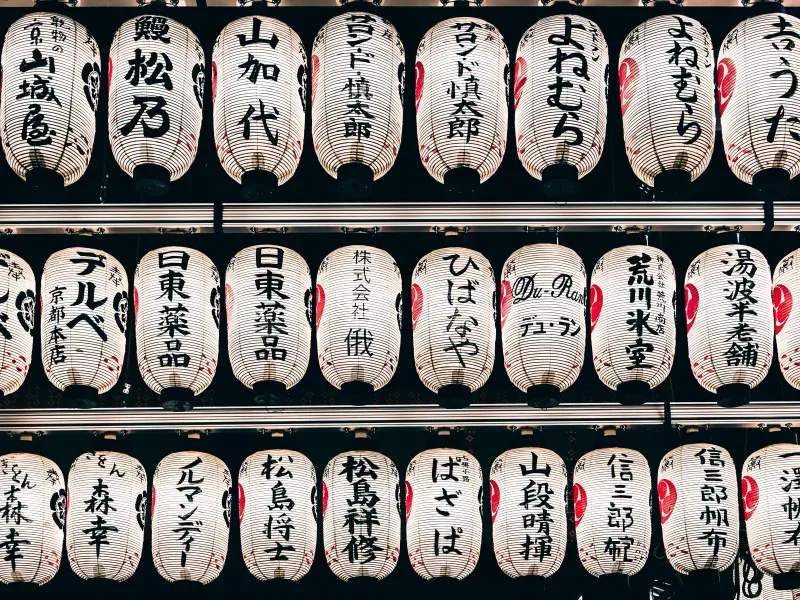 京山城屋
鰻 松乃
山加代
サロンド慎太郎
サロンド慎太郎
よねむら
よねむら
吉うた
デルベ
京都本店
日東薬品
日東薬品
株式会社 俄
ひばなや
Du-Ran
デュ・ラン
荒川氷室
湯波半老舗
ぎをん
森幸
ぎをん
森幸
ノルマンディー
松島将士
松島祥修
ぱざぱ
山段晴揮
信三郎帆
信三郎帆布
一澤帆布